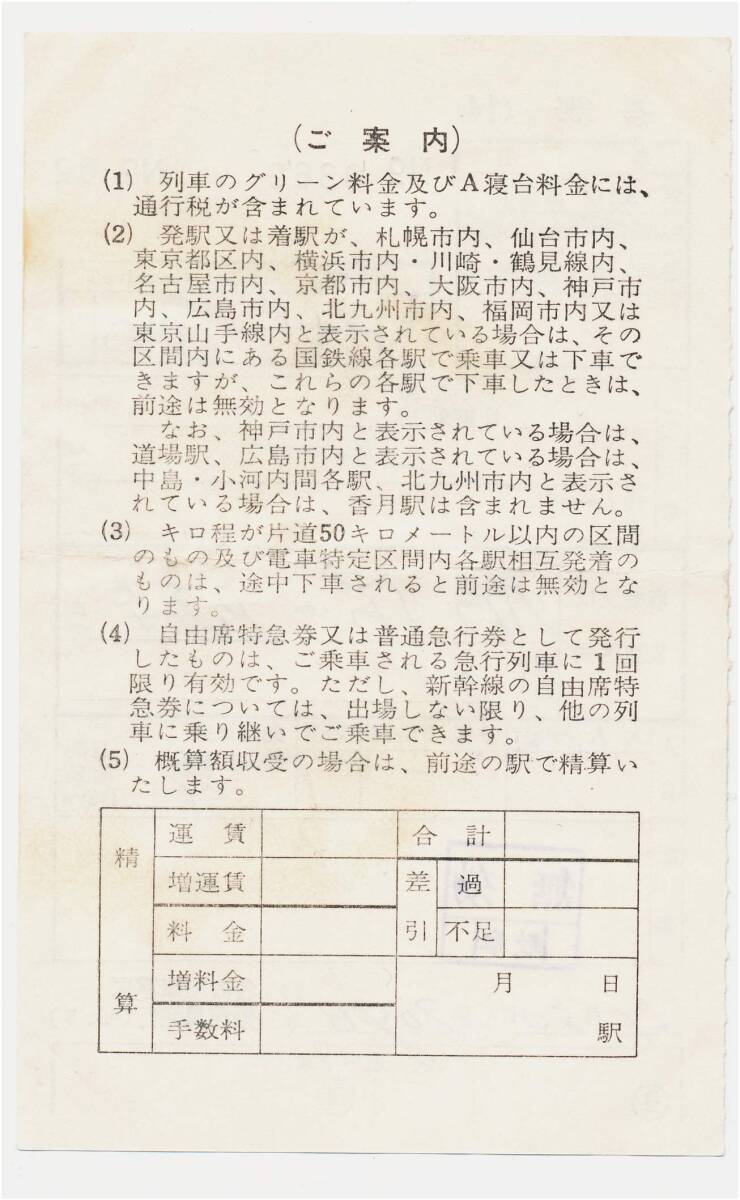 (ご案内)
(1) 列車のグリーン料金及びA寝台料金には、
通行税が含まれています。
(2) 発駅又は着駅が、札幌市内、仙台市内、
東京都区内、横浜市内・川崎・鶴見線内、
名古屋市内、京都市内、大阪市内、神戸市
内、広島市内、北九州市内、福岡市内又は
東京山手線内と表示されている場合は、その
区間内にある国鉄線各駅で乗車又は下車で
きますが、これらの各駅で下車したときは、
前途は無効となります。
なお、神戸市内と表示されている場合は、
道場駅、広島市内と表示されている場合は、
中島・小河内間各駅、北九州市内と表示さ
れている場合は、香月駅は含まれません。
(3) キロ程が片道50キロメートル以内の区間
のもの及び電車特定区間内各駅相互発着の
ものは、途中下車されると前途は無効とな
ります。
(4) 自由席特急券又は普通急行券として発行
したものは、ご乗車される急行列車に1回
限り有効です。ただし、新幹線の自由席特
急券については、出場しない限り、他の列
車に乗り継いでご乗車できます。
(5) 概算額収受の場合は、前途の駅で精算い
たします。
精算
運賃 合計
増運賃 差引 過
料金 不足
増料金 月 日
手数料 駅